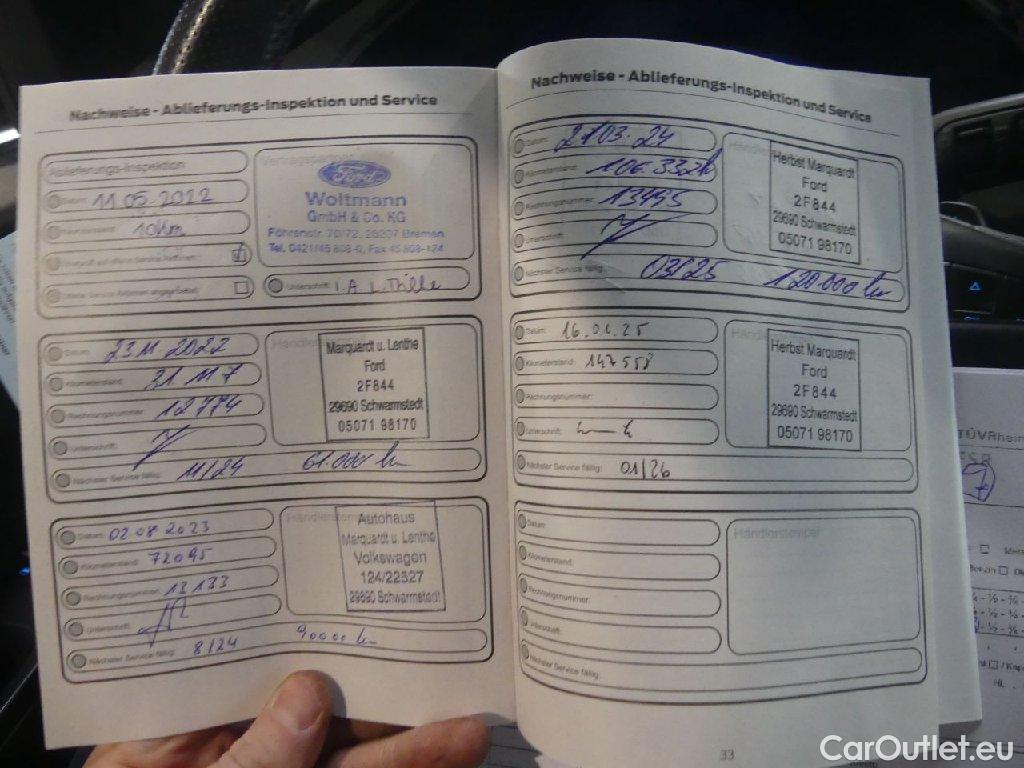 Nachweise - Ablieferungs-Inspektion und Service
Ablieferungs-Inspektion
Datum: 11 05 2022
10 km
Ford
Woltmann
GmbH & Co. KG
Föhrenstr. 70/72, 28207 Bremen
Unterschrift: i.A
Datum: 23 11 2022
Kilometerstand: 31 117
Rechnungsnummer: 12774
Unterschrift:
Nächster Service fällig: 11/24 61.000 km
Marquardt u. Lenthe
Ford
2F844
29690 Schwarmstedt
05071 98170
Datum: 02 08 2023
Kilometerstand: 72095
Rechnungsnummer: 13133
Unterschrift:
Nächster Service fällig: 8/24 90000 km
Autohaus
Marquardt u. Lenthe
Volkswagen
124/22327
29690 Schwarmstedt
Nachweise - Ablieferungs-Inspektion und Service
Datum: 21 03. 24
Kilometerstand: 106.332
Rechnungsnummer: 13495
Unterschrift:
Nächster Service fällig: 03/25 120.000 km
Herbst Marquardt
Ford
2F844
29690 Schwarmstedt
05071 98170
Datum: 16.01.25
Kilometerstand: 147558
Rechnungsnummer:
Unterschrift:
Nächster Service fällig: 01/26
Herbst Marquardt
Ford
2F844
29690 Schwarmstedt
05071 98170
Datum:
Kilometerstand:
Rechnungsnummer:
Unterschrift:
Nächster Service fällig:
Händlerstempel
33
CarOutlet.eu